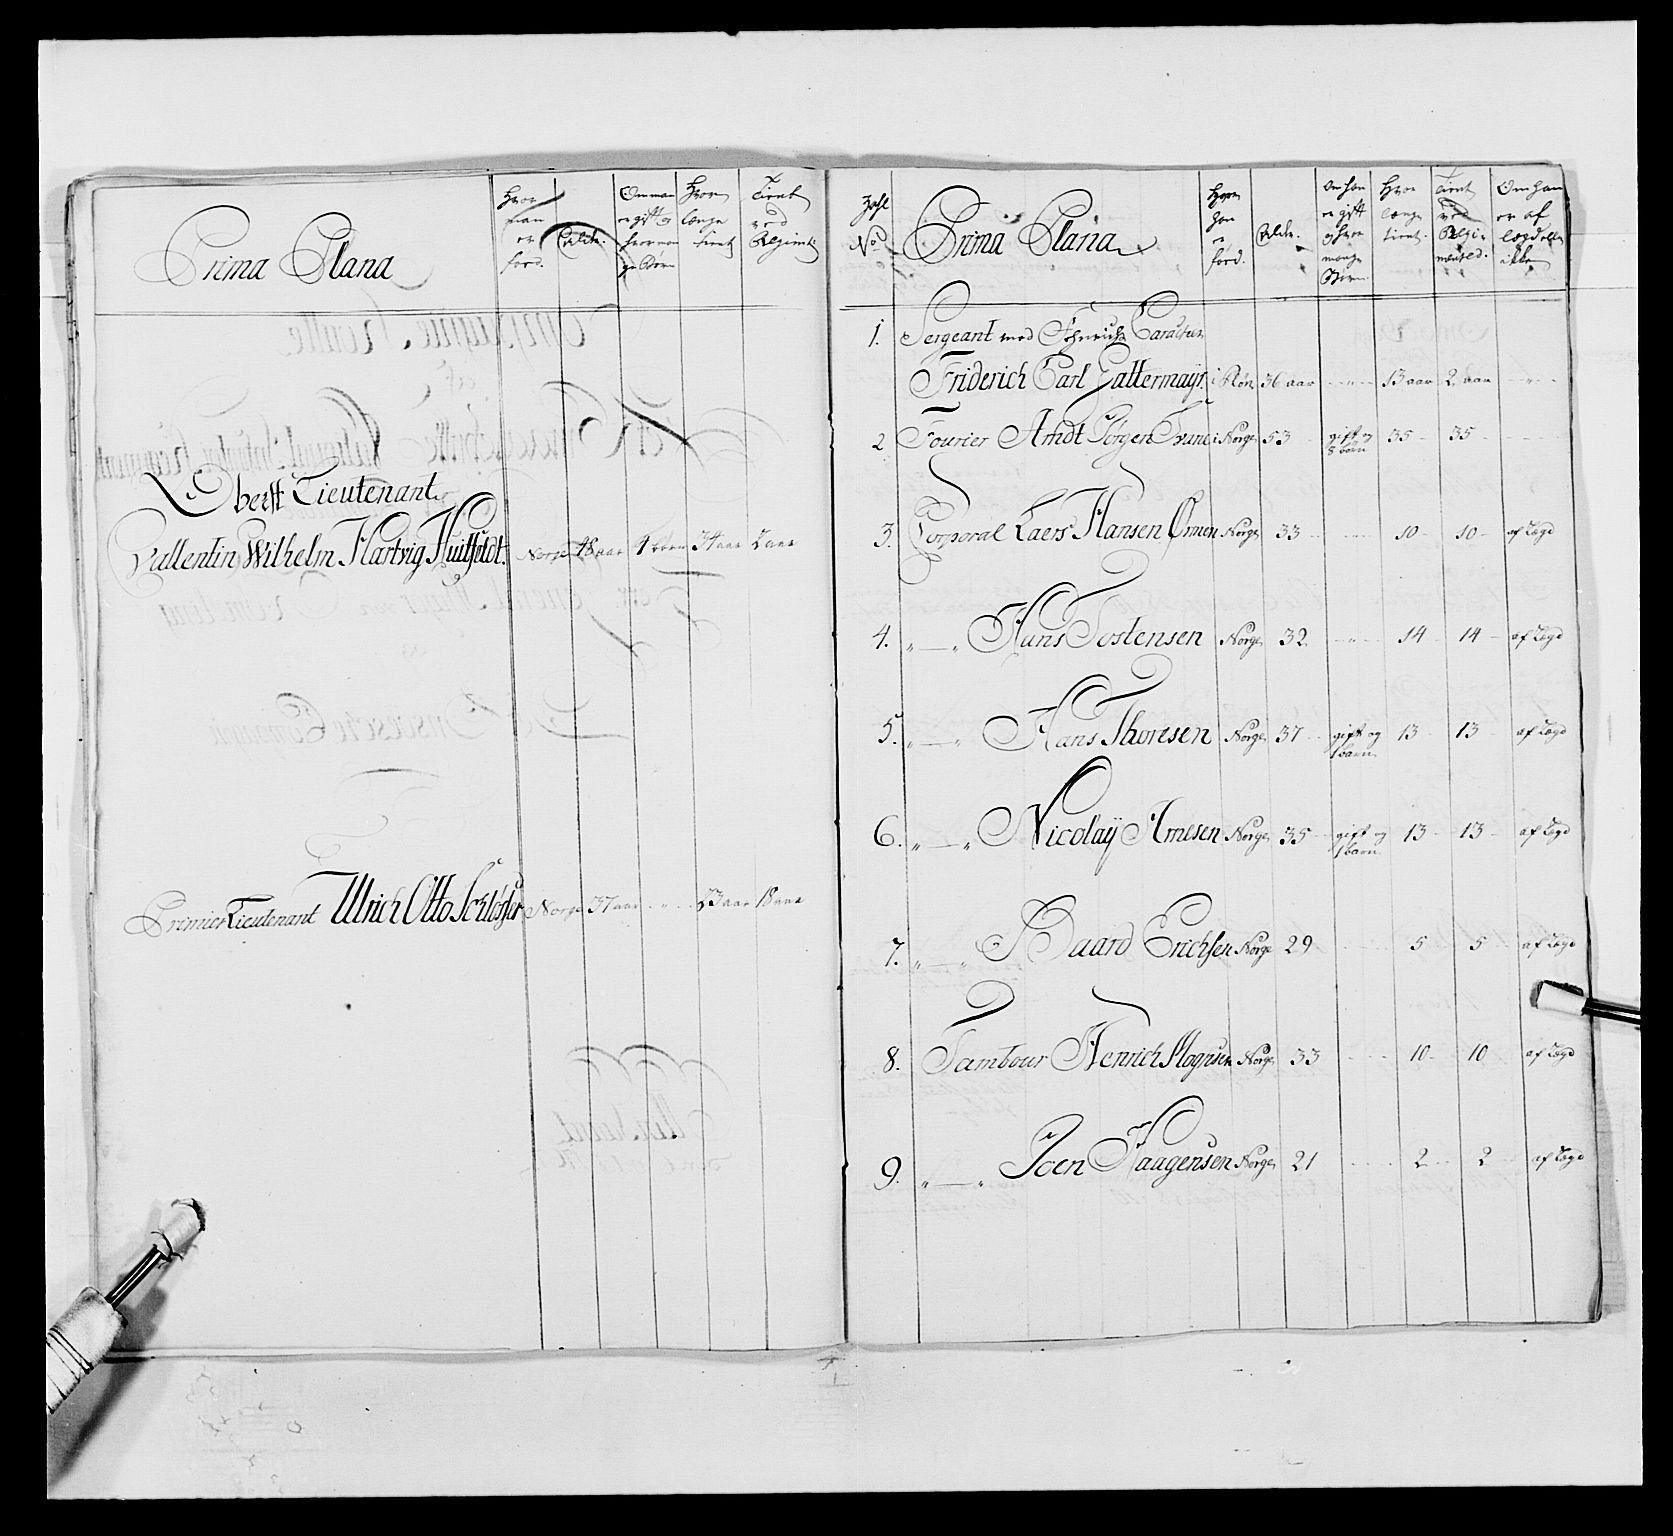 Prima Plana
Hvor man er föed.
Alder.
Om man er gift og hvor mange Börn
Hvor længe tient
Tient ved Regimt:
Oberst Lieutenant
Vallentin Wilhelm Hartvig Huitfeldt. Norge 48 aar 4 börn 34 aar 2 aar
Primier Lieutenant Ulrich Otto Schlösser Norge 37 aar " 23 aar 18 aar
Zahl No
Prima Plana
Hvor han er föed.
Alder.
Om han er gift og hvor mange Börn
Hvor længe tient.
Tient ved Regimentet.
Om han er af lægd eller ikke
1. Sergeant med Caracteer
Friderich Carl 36 aar " 13 aar 2 aar "
2 Fourier Arndt Jörgen Norge 53 gift og 8 börn 35 35
3. Corporal Laers Hansen Norge 33 10 10 af Lægd
4. " — " Hans Tostensen Norge 32 " 14 14 af Lægd
5. " — " Hans Thoresen Norge 37 gift og 1 barn 13 13 af Lægd
6. " — " Nicolaÿ Arnesen Norge 35 gift og 1 barn 13 13 af Lægd
7. " — " Baard Erichsen Norge 29 5 5 af Lægd
8. Tambour Henrich Mognsen Norge 33 10 10 af Lægd
9. " — " Joen Haagensen Norge 21 2 2 af Lægd